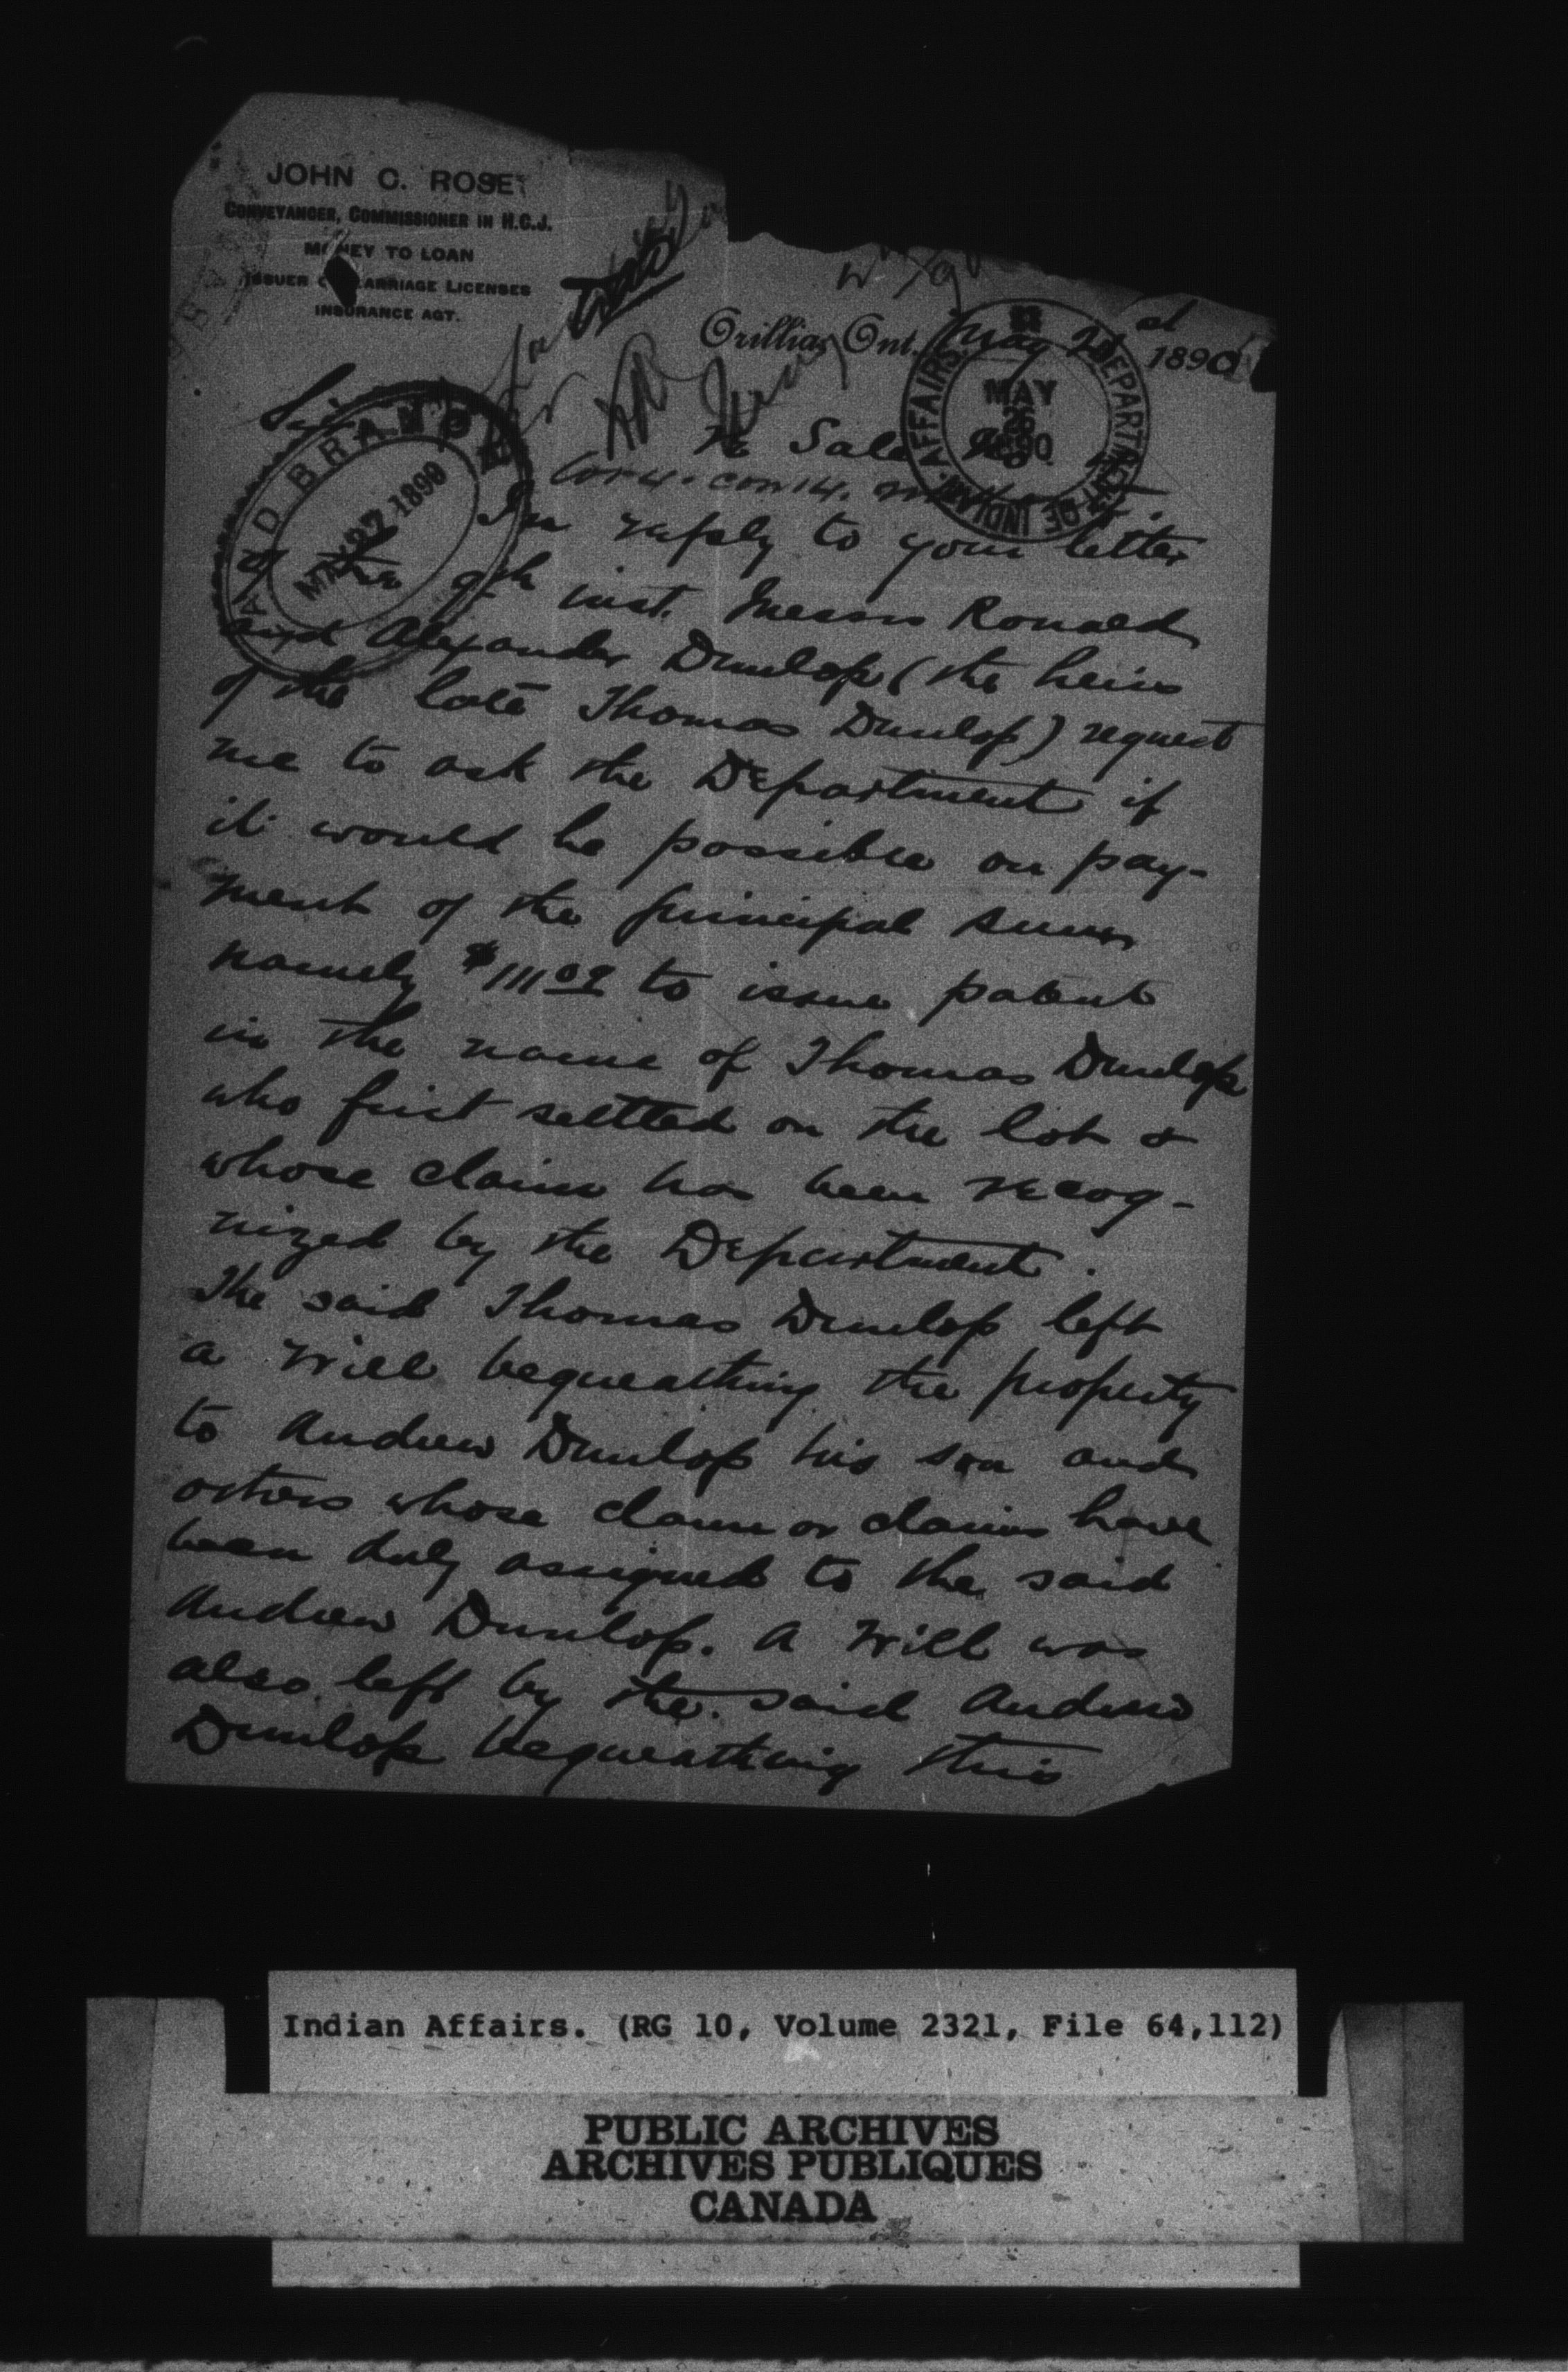 JOHN C. ROSE
CONVEYANCER, COMMISSIONER IN H.C.J.
MONEY TO LOAN
ISSUER OF MARRIAGE LICENSES
INSURANCE AGT.
Orillia, Ont. May 1890
Sir
Re Sale No.
Lot 4. con 14.
In reply to your letter
of the 9th inst. Messrs Ronald
and Alexander Dunlop (the heirs
of the late Thomas Dunlop) request
me to ask the Department if
it would be possible on pay-
ment of the principal sum
namely $111 09 to issue patent
in the name of Thomas Dunlop
who first settled on the lot &
whose claim has been recog-
nized by the Department.
The said Thomas Dunlop left
a Will bequeathing the property
to Andrew Dunlop his son and
others whose claim or claims have
been duly assigned to the said
Andrew Dunlop. A Will was
also left by the said Andrew
Dunlop bequeathing this
DEPARTMENT OF INDIAN AFFAIRS
MAY
26
1890
LAND BRANCH
MAY 27 1890
Indian Affairs. (RG 10, Volume 2321, File 64,112)
PUBLIC ARCHIVES
ARCHIVES PUBLIQUES
CANADA